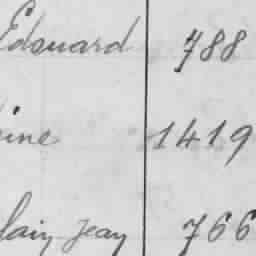 Edouard 788
ine 1419
lain Jean 766